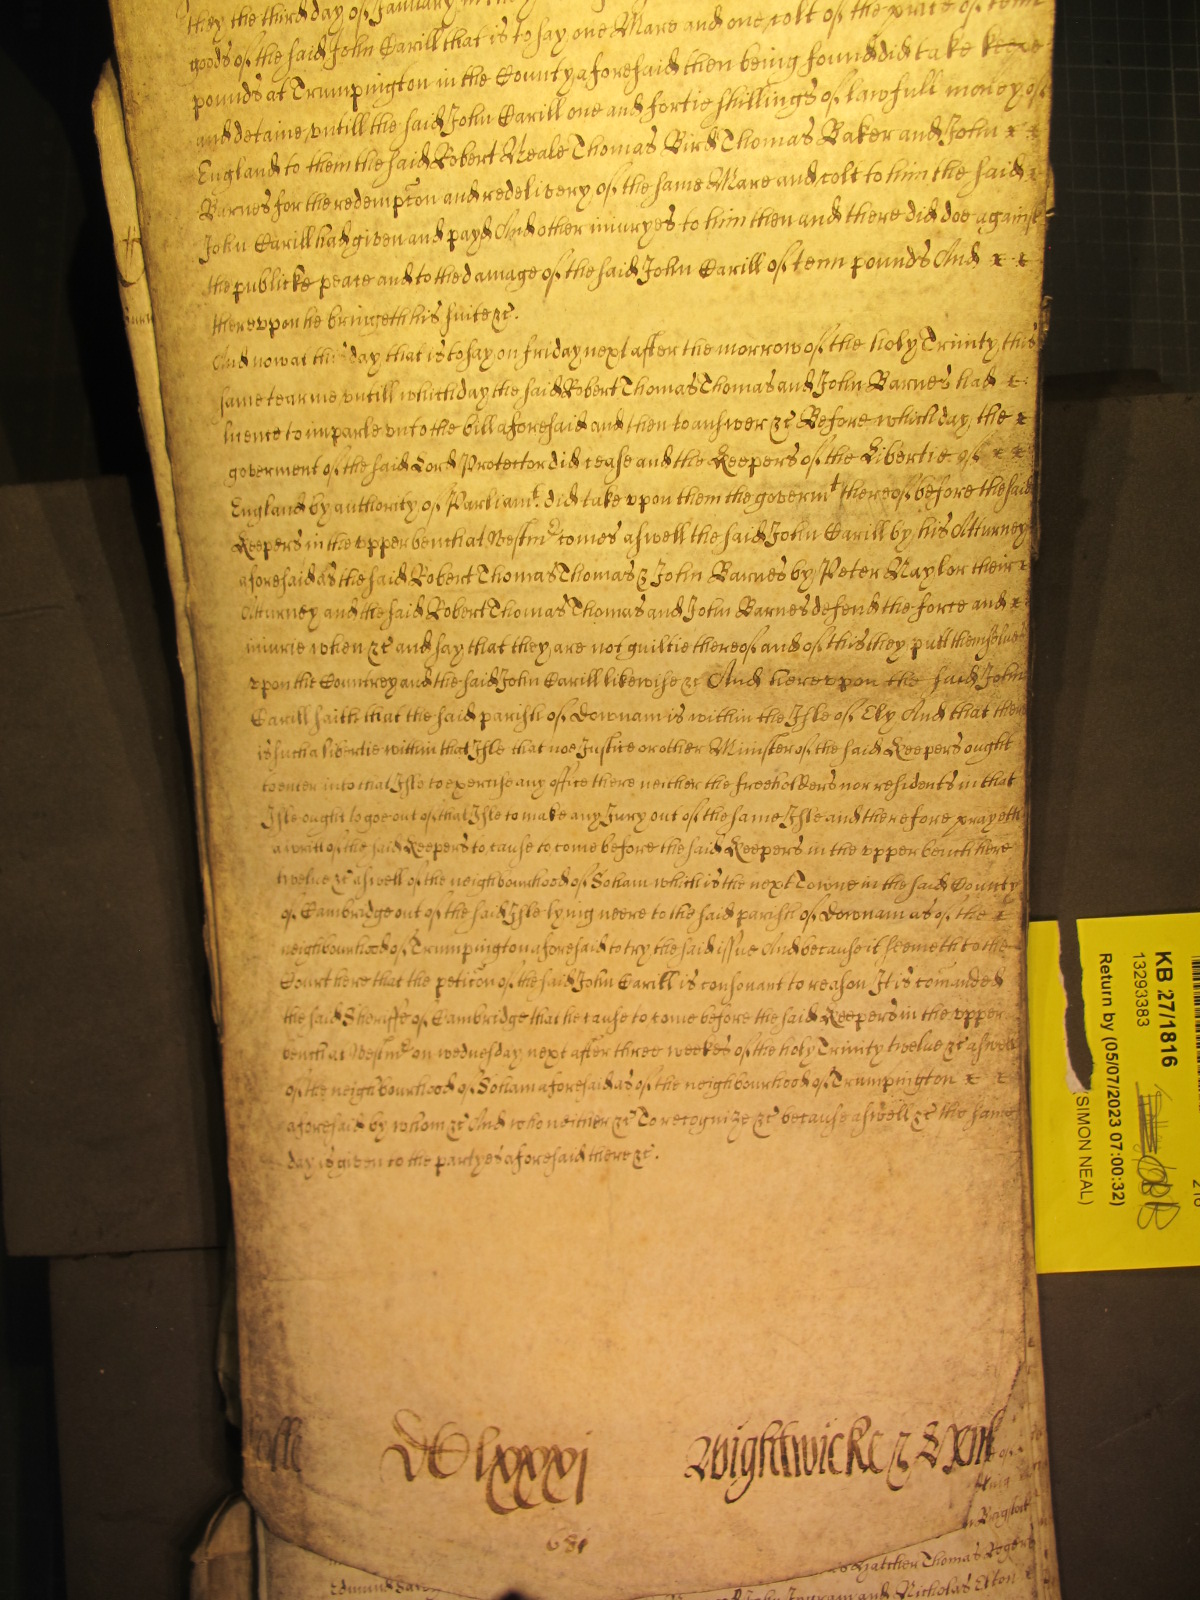 they the third day of January in the
goods of the said John Carill that is to say one Mare and one colt of the price of tenn
pounds at Trumpington in the County aforesaid then being found did take keepe
and detaine, untill the said John Carill one and fortie shillings of lawfull money of
England to them the said Robert Neale Thomas Bird Thomas Baker and John
Barnes for the redempcon and redelivery of the same Mare and colt to him the said
John Carill had given and payd And other iniuryes to him then and there did doe against
the publicke peace and to the damage of the said John Carill of tenn pounds And
thereupon he bringeth his suite &c.
And now at this day that is to say on friday next after the morrow of the holy Trinity, this
same tearme, untill which day the said Robert Thomas Thomas and John Barnes had
licence to imparle unto the bill aforesaid and then to answer &c Before which day, the
goverment of the said Lord Protector did cease and the Keepers of the Libertie of
England by authority of Parliamt. did take upon them the governmt thereof before the said
Keepers in the upper bench at Westmr comes aswell the said John Carill by his Atturney
aforesaid as the said Robert Thomas Thomas & John Barnes by Peter Naylor their
Atturney and the said Robert Thomas Thomas and John Barnes defend the force and
iniurie when &c and say that they are not guiltie thereof and of this they putt themselves
upon the Countrey and the said John Carill likewise &c And hereupon the said John
Carill saith that the said parish of Downam is within the Isle of Ely And that there
is such a libertie within that Isle that noe Justice or other Minister of the said Keepers ought
to enter into that Isle to exercise any office there neither the freeholders nor residents in that
Isle ought to goe out of that Isle to make any Jury out of the same Isle and therefore prayeth
a writt of the said Keepers to cause to come before the said Keepers in the upper bench here
twelve &c aswell of the neighbourhood of Soham which is the next Towne in the said County
of Cambridge out of the said Isle lying neere to the said parish of Downam as of the
neighbourhood of Trumpington aforesaid to try the said issue And because it seemeth to the
Court here that the peticon of the said John Carill is consonant to reason It is comanded
the said Sheriffe of Cambridge that he cause to come before the said Keepers in the upper
bench at Westmr on wednesday next after three weekes of the holy Trinity twelve &c aswell
of the neighbourhood of Soham aforesaid as of the neighbourhood of Trumpington
aforesaid by whom &c And who neither &c To recognize &c because aswell &c the same
day is given to the partyes aforesaid there &c.
DClxxxj Wightwicke &
681
Hatcher Thomas Rogers
Edmund
John Ingram and Nicholas Elton
KB 27/1816
13293383
Return by (05/07/2023 07:00:32)
(SIMON NEAL)